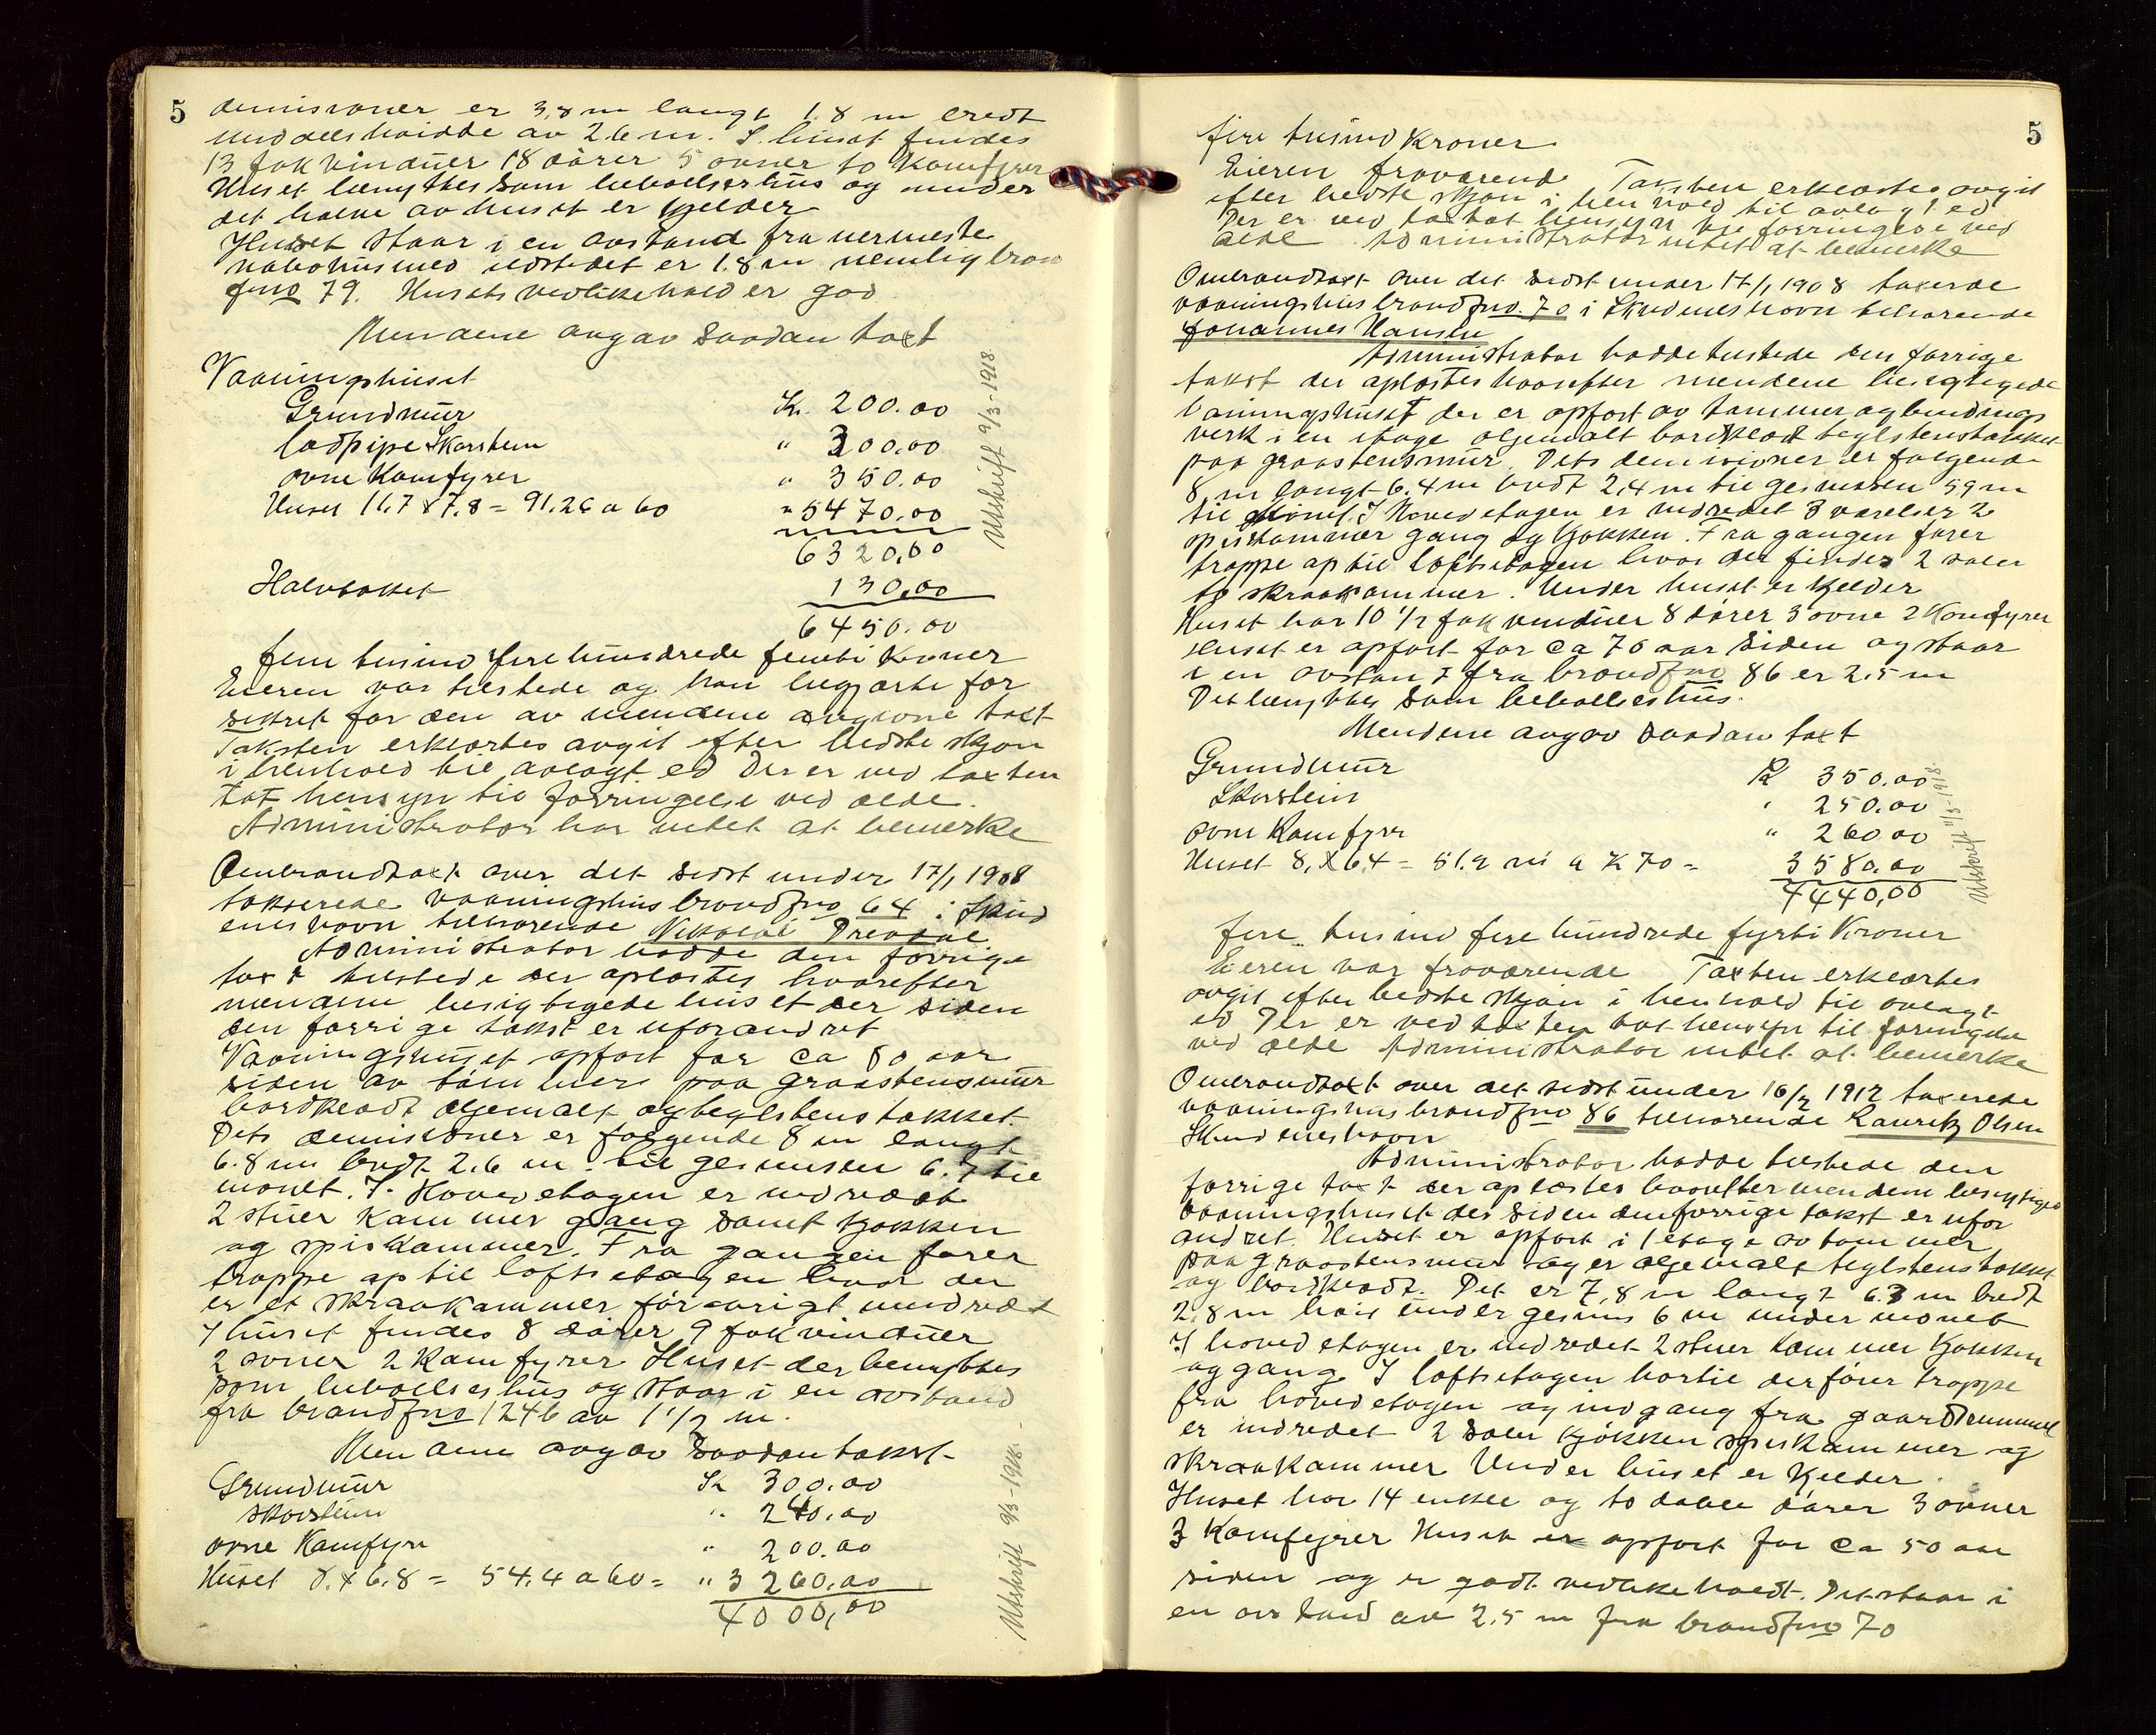 5
demisioner er 3,8 m langt 1.8 m bredt
middelshøidde av 2.6 m. I huset findes
13 fak vinduer 18 dører 5 ovner to Komfyrer
Huset benyttes som beboelseshus og under
det halve av huset er Kjelder
Huset staar i en avstand fra nermeste
nabohus med udstedet er 1.8 m nemlig bran
fno 79. Husets vedlikehold er god
Mendene avgav saadan taxt
Vaaningshuset
Grundmur Kr. 200.00
Skorstein " 300.00
ovne Komfyrer " 350.00
Huset 11.7 x 7.8 = 91.26 a 60 " 5470.00
6320,00
Halvtaket 130,00
6450.00
Utskrift 9/3-1918
fem tusind fire hundrede femti Kroner
Eieren var tilstede og han begjærte for
sikret for den av mendene avgivne taxt
Taksten erklærtes avgit efter bedste skjøn
i henhold til avlagt ed Der er ved taxten
tat hensyn til forringelse ved ælde.
Administrator har intet at bemerke
Ombrandtaxt over det sidst under 17/1 1908
takserede vaaningshus brandfno 64 i Skud
eneshavn tilhørende Nikolai
Administrator hadde den forrige
taxt tilstede der oplæstes hvorefter
mendene besigtigede huset der siden
den forrige takst er uforandret
Vaaningshuset opført for ca 80 aar
siden av tømmer paa graastensmur
bordklædt oljemalt og teglstenstækket.
Dets demisioner er følgende 8 m langt
6.8 m bredt 2.6 m til gesimsen 6.7 til
mønet. I Hovedetagen er indredet
2 stuer Kammer gang samt kjøkken
og spiskammer. Fra gangen fører
trappe op til loftsetagen hvor der
er et skraakammer forøvrigt uindredet
I huset findes 8 dører 9 fak vinduer
2 ovner 2 Komfyrer Huset der benyttes
som beboelseshus og staar i en avstand
fra brandfno 124b av 1 1/2 m.
Mendene avgav saadan takst
Grundmur Kr 300.00
skorstein " 240.00
ovne Komfyr " 200.00
Huset 8. x 6.8 = 54.4 a 60 = " 3260.00
4000,00
Utskrift 9/3-1918.
5
fire tusind Kroner
Eieren fraværende Taksten erklærtes avgit
efter bedste skjøn i henhold til avlagt ed
Der er ved taxt tat hensyn til forringelse ved
ælde Administrator intet at bemerke
Ombrandtaxt over det sidst under 17/1 1908 taxerede
vaaningshus brandfno. 70 i Skudeneshavn tilhørende
Johannes Hansen
Administrator hadde tilstede den forrige
takst der oplæstes hvorefter mendene besigtigede
vaaningshuset der er opført av tømmer og bindings
verk i en etage oljemalt bordklædt teglstenstækket
paa graastensmur. Dets demisioner er følgende
8 m langt 6.4 m bredt 2,4 m til gesimsen 5.9 m
til mønet. I Hovedetagen er indredet 3 værelser 2
spiskammer gang og kjøkken. Fra gangen fører
trappe op til loftsetagen hvor der findes 2 saler
to skraakammer. Under huset er Kjelder
Huset har 10 1/2 fak vinduer 8 dører 3 ovne 2 Komfyrer
Huset er opført for ca 70 aar siden og staar
i en avstand fra brandfno 86 er 2.5 m
Det benyttes som beboelseshus.
Mendene avgav saadan taxt
Grundmur Kr 350.00
Skorstein " 250.00
ovne Komfyrer " 260 00
Huset 8. x 6.4 = 51.2 m a K 70 = 3580.00
4440,00
Utskrift 11/3-1918.
fire tusind fire hundrede fyrti Kroner
Eieren var fraværende Taxten erklærtes
avgit efter bedste skjøn i henhold til avlagt
ed Der er ved taxten tat hensyn til forringelse
ved ælde Administrator intet at bemerke
Ombrandtaxt over det sidst under 16/2 1912 taxerede
vaaningshus brandfno 86 tilhørende Lauritz Olsen
Skudeneshavn
Administrator hadde tilstede den
forrige taxt der oplæstes hvorefter mendene besigtiged
vaaningshuset der siden den forrige takst er ufor
andret. Huset er opført i 1 etage av tømmer
paa graastensmur og er oljemalt teglstenstækket
og bordklædt. Det er 7,8 m langt 6.3 m bredt
2,8 m høit under gesims 6 m under mønet
I hovedetagen er indredet 2 stuer kammer Kjøkken
og gang. I loftsetagen hvortil der fører trappe
fra hovedetagen og indgang fra gaardsrummet
er indredet 2 saler kjøkken spiskammer og
skraakammer Under huset er Kjelder.
Huset har 14 enkle og to doble dører 3 ovner
3 Komfyrer Huset er opført for ca 50 aar
siden og er godt vedlikeholdt. Det staar i
en avstand av 2.5 m fra brandfno 70